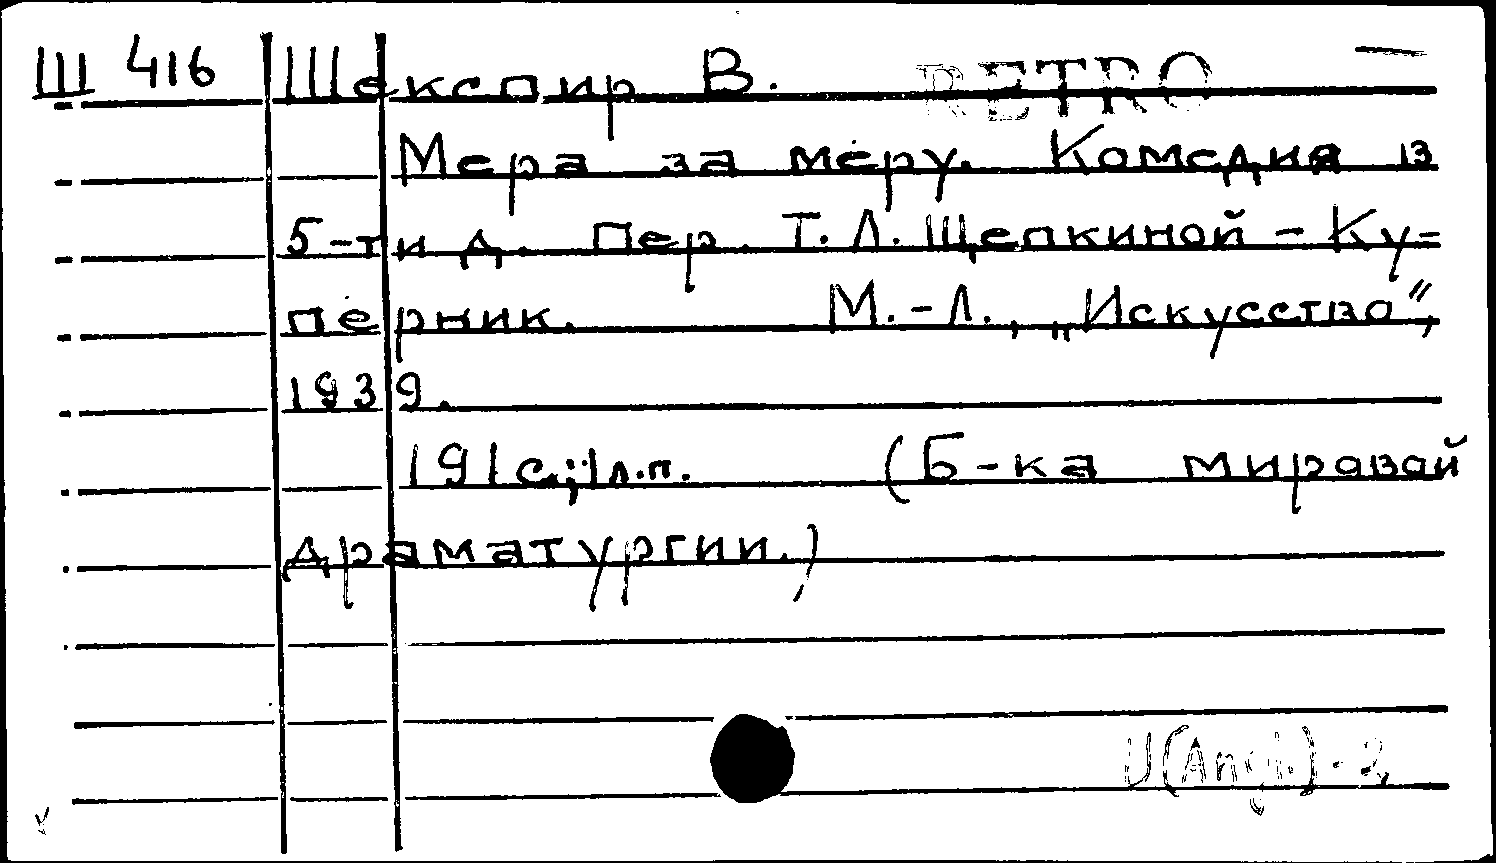 Ш 416 Шекспир В. RETRO
Мера за меру. Комедия в
5-ти д. Пер. Т. Л. Щепкиной - Ку=
перник. М.-Л., „Искусство",
1939.
191 с.; 1 л.п. (Б-ка мировой
драматургии.)
U(Angl.) - 2